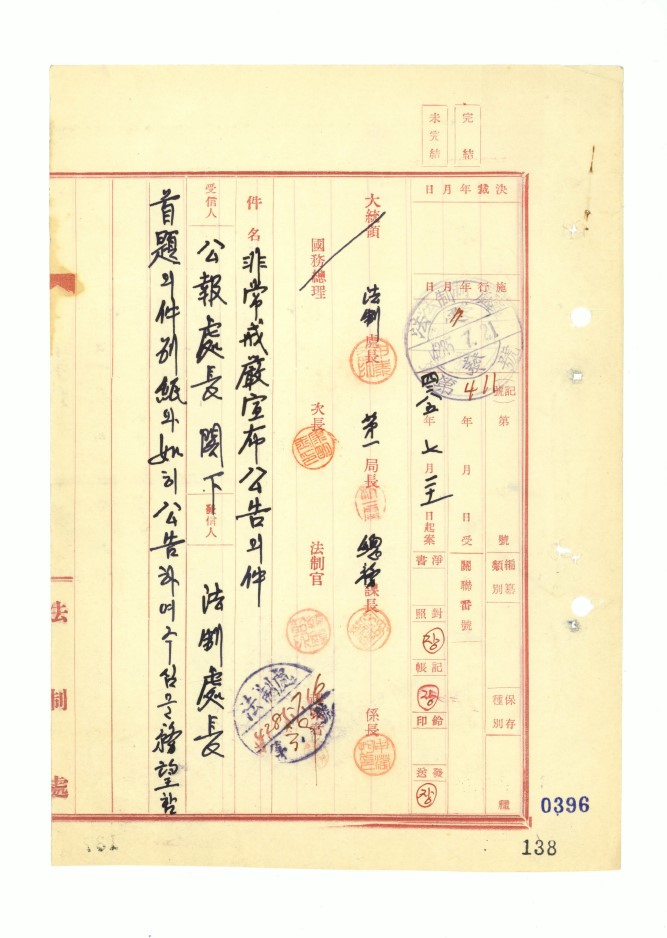 完結
未完結
決裁年月日
施行年月日
記號 第 號
411
年 月 日 受
關聯番號
編纂類別
保存種別
種
法制處
85.7.21
發
四二八五年七月二十一日起案
淨書
對照
장
記帳
장
鈴印
發送
장
大統領
法制處長
第一局長
總務課長
係長
國務總理
次長
法制官
法制處
件名 非常戒嚴宣布公告의件
受信人 公報處長 閣下
發信人 法制處長
首題의件別紙와如히公告하여주심을務望함
法制處
0396
138